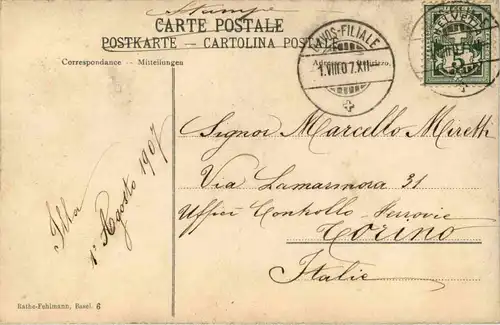 Stampe
CARTE POSTALE
POSTKARTE — CARTOLINA POSTALE
Correspondance — Mitteilungen
DAVOS-FILIALE
1.VIII.07.XII
HELVETIA
5
Signor Marcello Miretti
Via Lamarmora 31
Uffici Controllo Ferrovie
Torino
Italie
1º Agosto 1907
Rathe-Fehlmann, Basel. 6